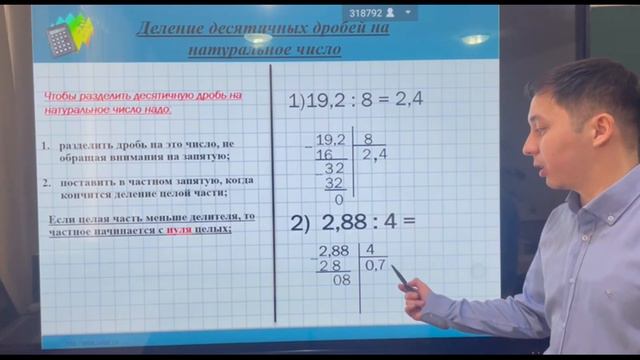 318792
Деление десятичных дробей на
натуральное число
Чтобы разделить десятичную дробь на
натуральное число надо:
1. разделить дробь на это число, не
обращая внимания на запятую;
2. поставить в частном запятую, когда
кончится деление целой части;
Если целая часть меньше делителя, то
частное начинается с нуля целых;
1)19,2 : 8 = 2,4
19,2 8
16 2,4
32
32
0
2) 2,88 : 4 =
2,88 4
28 0,7
08